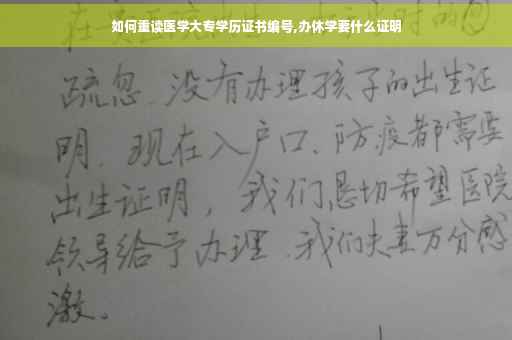 如何重读医学大专学历证书编号,办休学要什么证明
在
疏忽、没有办理孩子的出生证
明、现在入户口、防疫都需要
出生证明，我们恳切希望医院
领导给予办理、我们夫妻万分感
激。